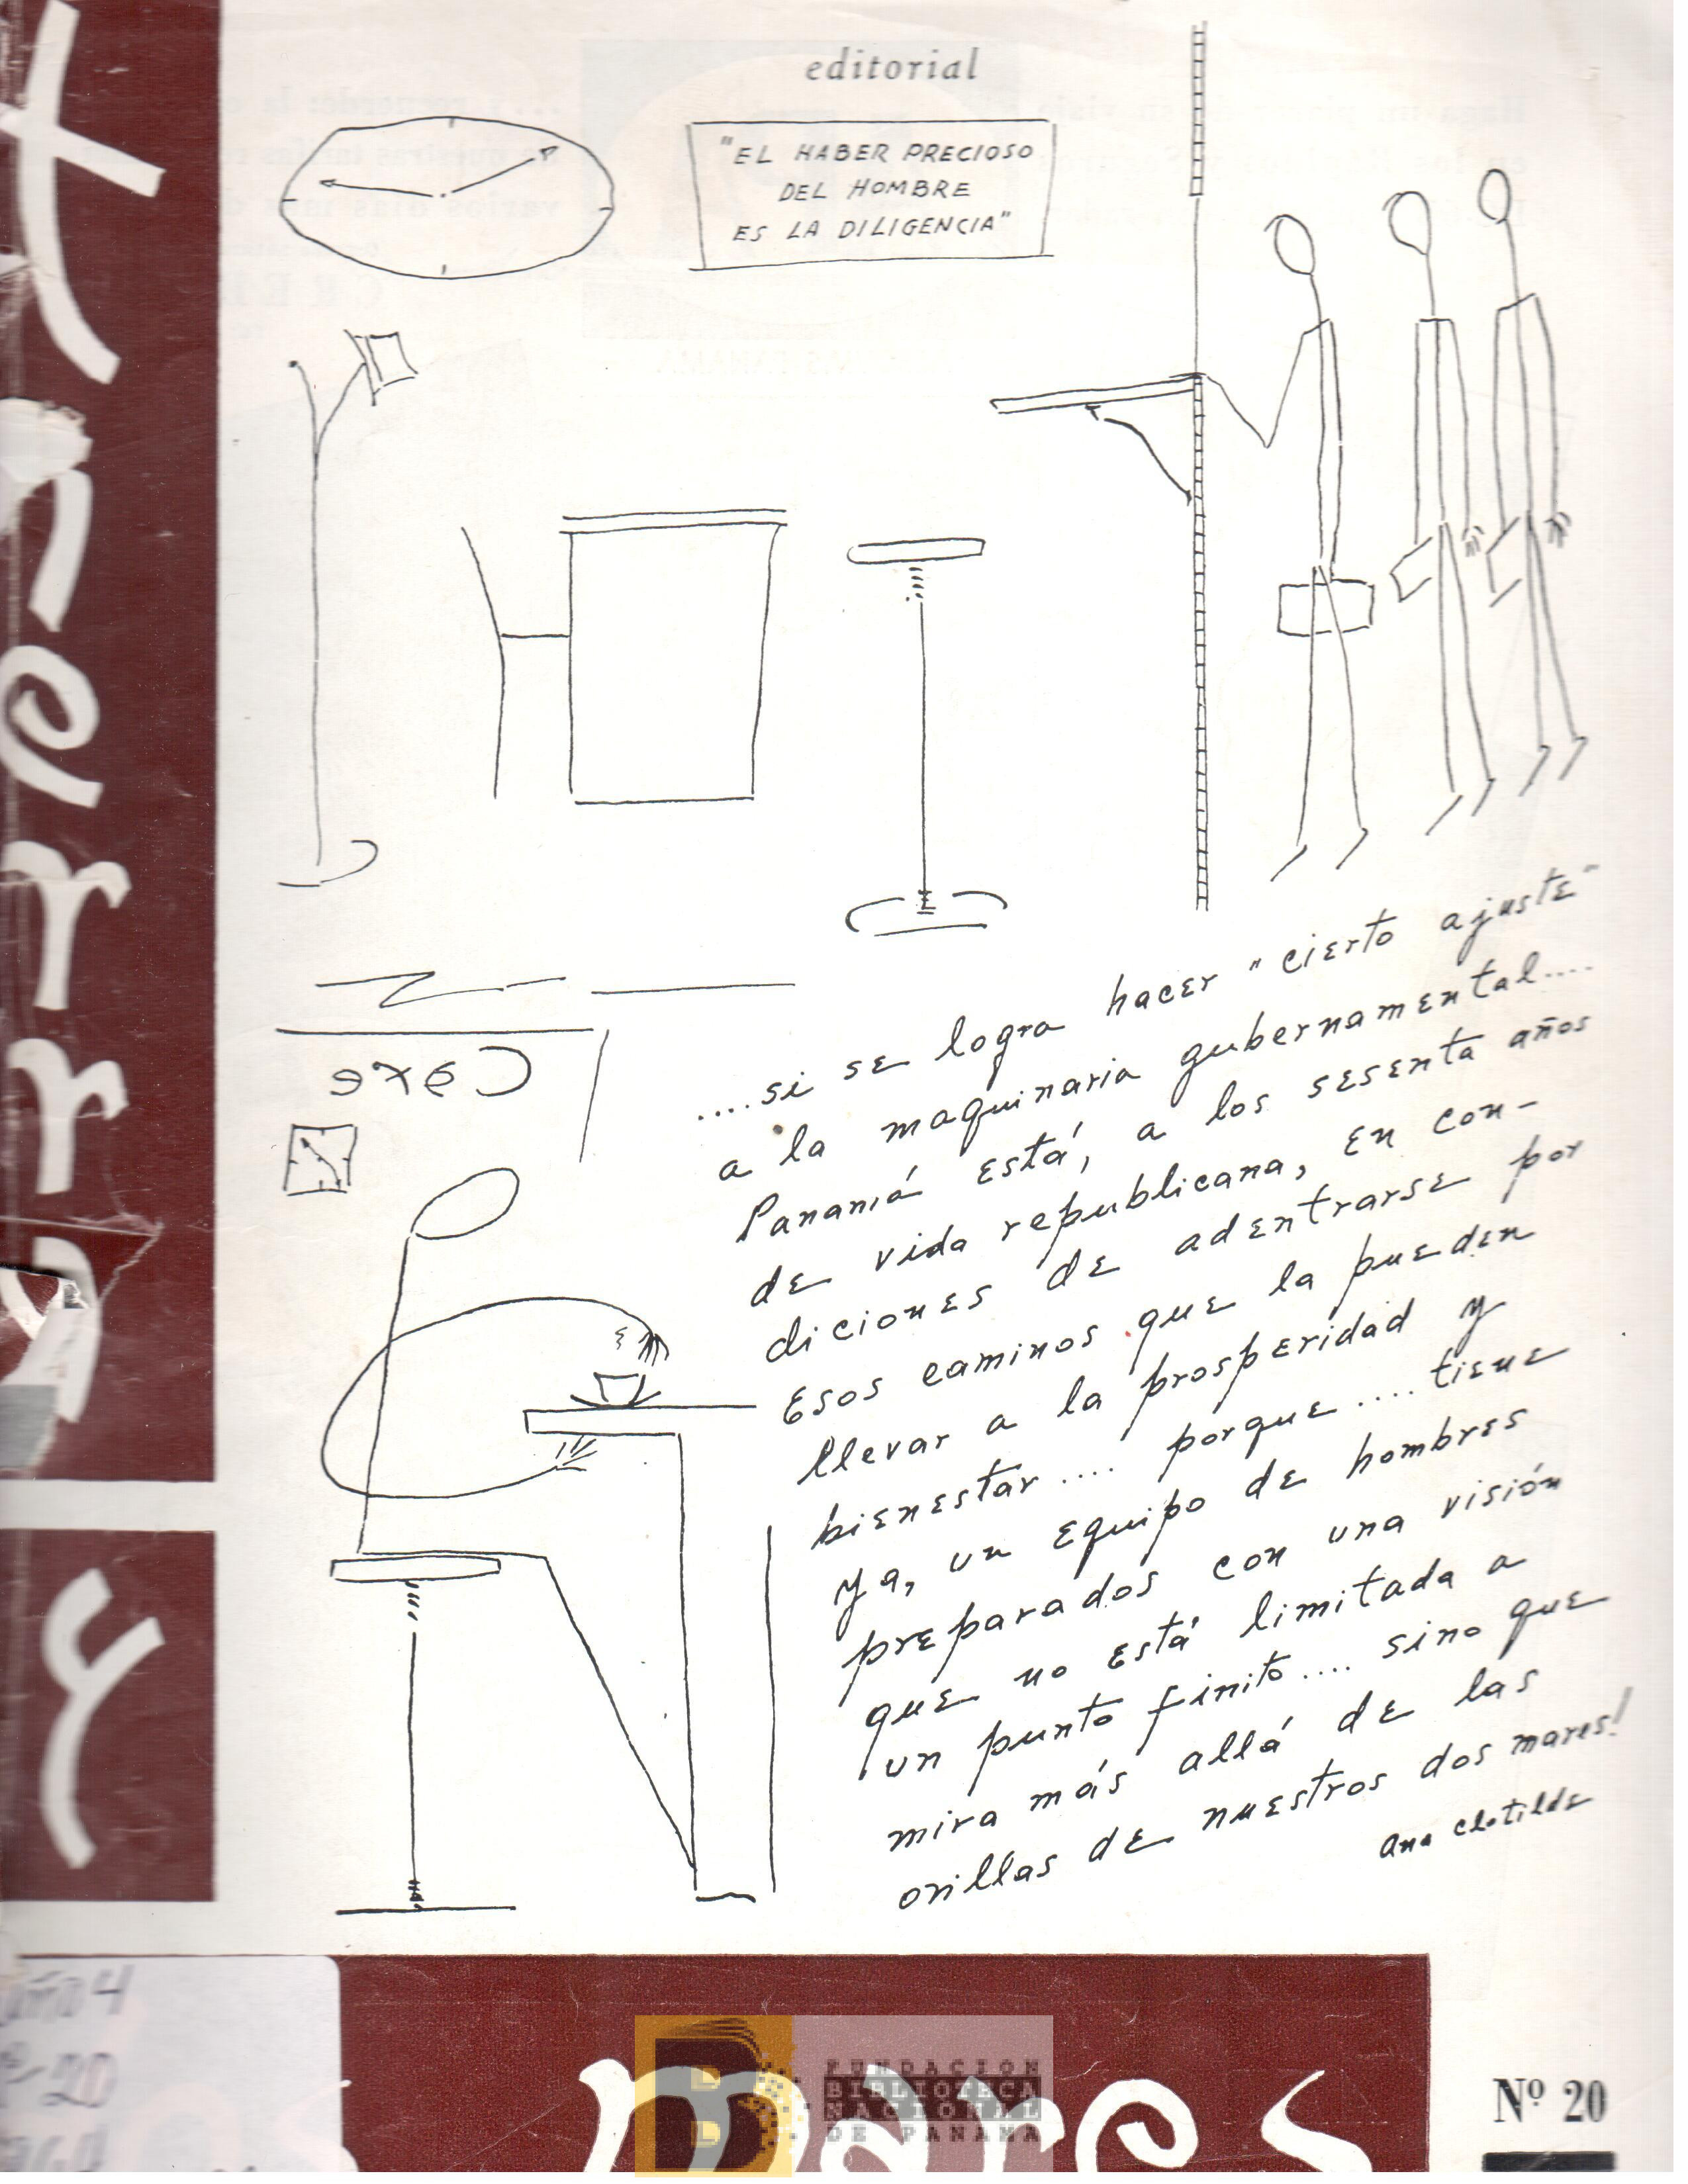 editorial
"EL HABER PRECIOSO
DEL HOMBRE
ES LA DILIGENCIA"
Cafe
....si se logra hacer "cierto ajuste"
a la maquinaria gubernamental....
Panamá está, a los sesenta años
de vida republicana, en con-
diciones de adentrarse por
esos caminos que la pueden
llevar a la prosperidad y
bienestar.... porque.... tiene
ya, un equipo de hombres
preparados con una visión
que no está limitada a
un punto finito.... sino que
mira más allá de las
orillas de nuestros dos mares!
Ana Clotilde
tierra
y
mares
Nº 20
FUNDACION
BIBLIOTECA
NACIONAL
DE PANAMA